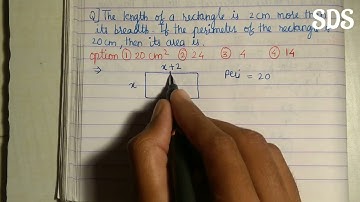 SDS
Q] The length of a rectangle is 2cm more than
its breadth. If the perimeter of the rectangle is
20cm, then its area is.
option ① 20cm² ② 24 ③ 4 ④ 14
⇒ x+2
x Peri = 20